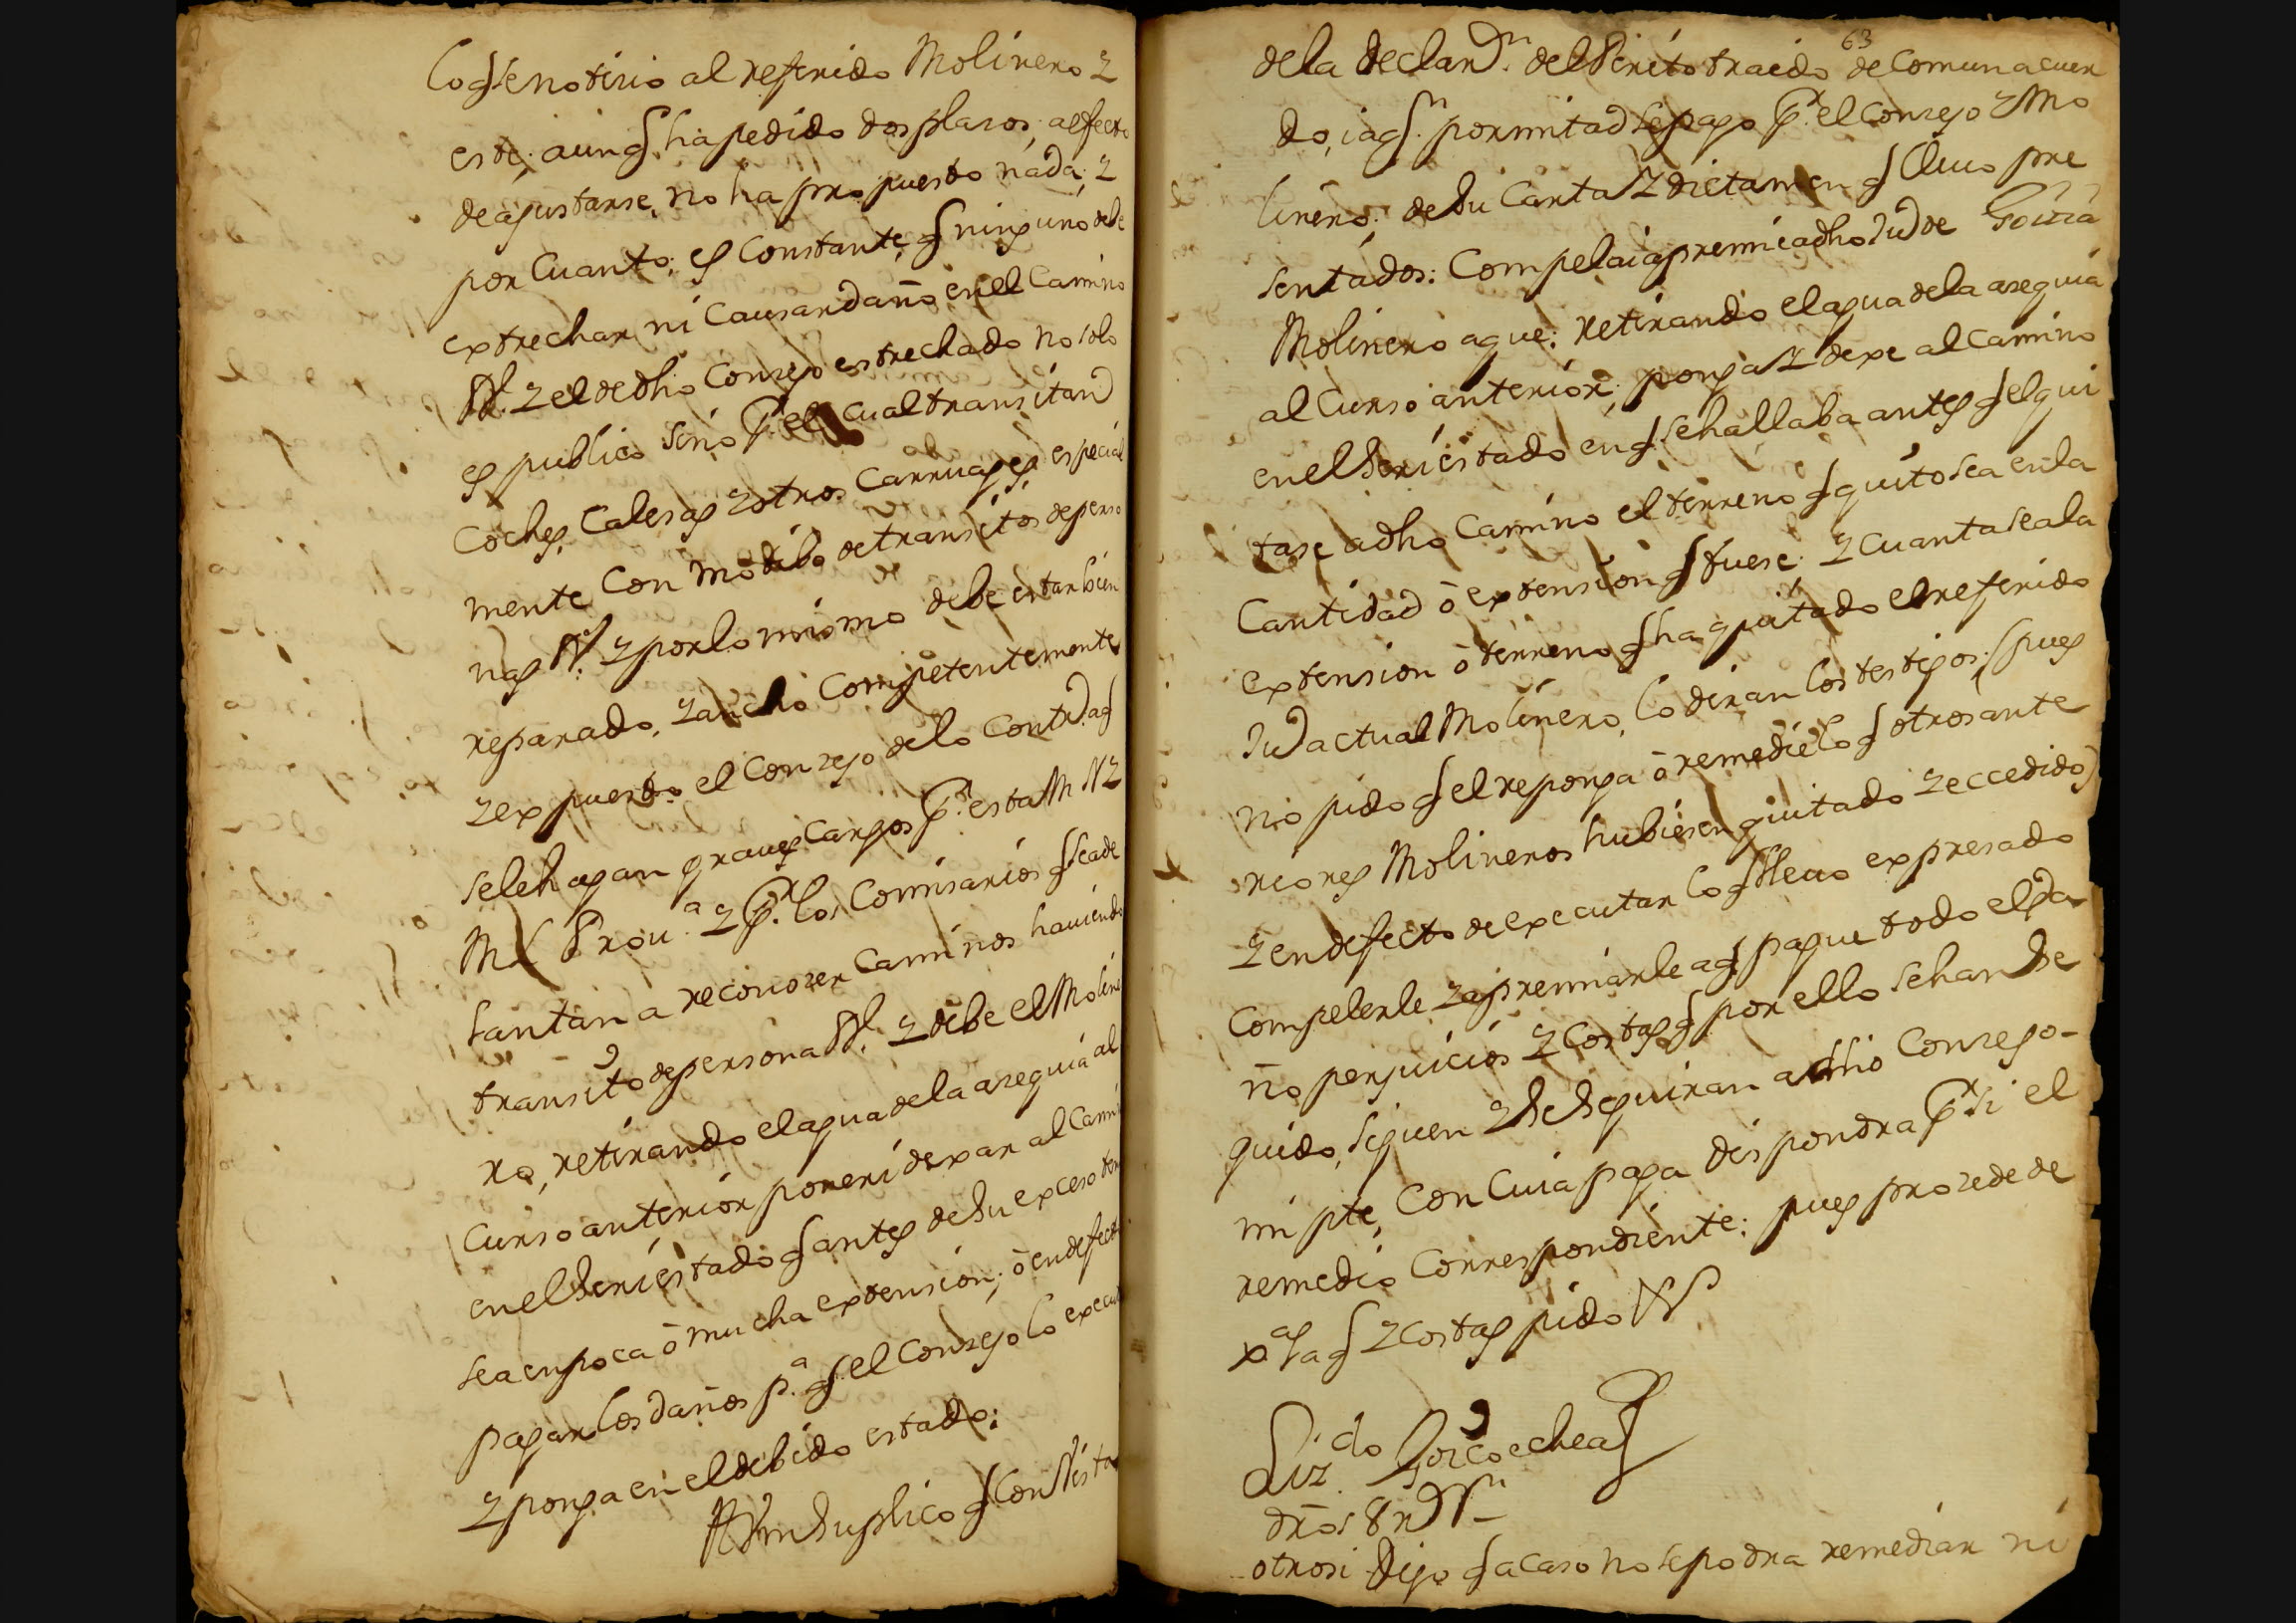 lo q se notizio al referido Molinero y
este, aunq ha pedido dos plazos a efecto
de ajustarse, no ha propuesto nada; y
por cuanto; es constante, q ninguno debe
extrechar ni causar daño en el camino
Rl. y el de dho Consejo estrechado no solo
es publico sino pr. el cual transitan
coches, calesas y otros carruages, especial
mente con motibo de transitos de perso
nas Rs. y por lo mismo debe estar bien
reparado, y ancho competentemente
y expuesto el Consejo de lo contro. a q
se le hagan graues cargos pr. esta M N y
M L Prou.a y pr. los Comisarios q se ade
lantan a reconozer caminos hauiendo
transito de persona Rl. y debe el Moline
ro, retirando el agua de la azequia al
curso anterior poner i dexar al cami
en el ser i estado q antes de su exceso
sea en poca ō mucha extension; ō en defecto
pagar los daños p.a q el Consejo lo execu
y ponga en el debido estado:
A Vm suplico q con vista
63
de la declaron. del Perito traido de comun acuer
do, i a qn. por mitad se pago pr. el Consejo y Mo
linero; de su Carta y dictamen q lleuo pre
sentados: compela i apremie a dho Jud de Goizia
Molinero a que; retirando el agua de la azequia
al curso anterior; ponga y dexe al camino
en el ser i estado en q se hallaba antes q el qui
tase a dho camino el terreno q quito sea en la
cantidad ō extension q fuese: y cuanta sea la
extension ō terreno q ha quitado el referido
Jud actual Molinero, lo diran los testigos; (pues
no pido q el reponga ō remedie lo q otros ante
riores Molineros hubiesen quitado y eccedido)
y en defecto de executar lo q lleuo expresado
compelerle y apremiarle a q pague todo el da
ño, perjuicios y costas q por ello se han se
guido, siguen y se seguiran a dho Consejo-
mi pte, con cuia paga dispondra pr. si el
remedio correspondiente: pues prozede de
y costas pido
Liz.do Goicoechea
dros 8 r
otrosi Digo q acaso no se podra remediar ni